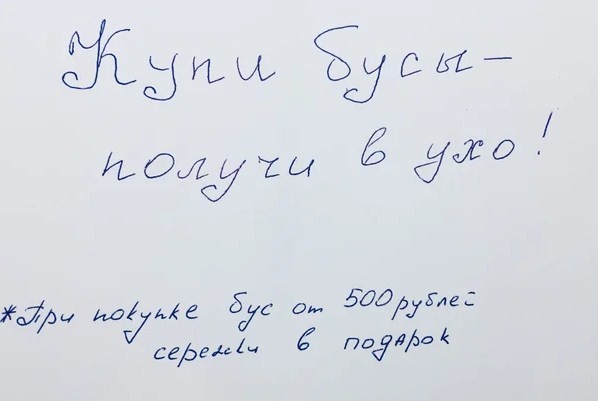 Купи бусы-
получи в ухо!
*При покупке бус от 500 рублей
сережки в подарок